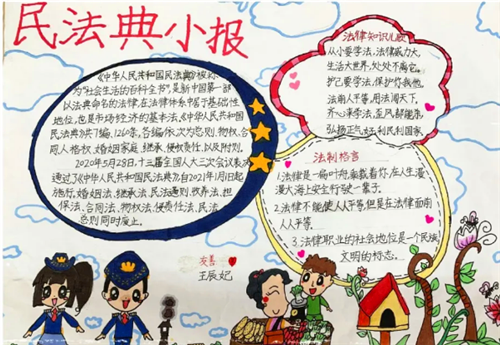 民法典小报
《中华人民共和国民法典》被称
为“社会生活的百科全书”,是新中国第一部
以法典命名的法律,在法律体系中居于基础性
地位,也是市场经济的基本法,《中华人民共和国
民法典》共7编、1260条,各编依次为总则、物权、合
同、人格权、婚姻家庭、继承、侵权责任,以及附则。
2020年5月28日,十三届全国人大三次会议表决
通过了《中华人民共和国民法典》,自2021年1月1日起
施行。婚姻法、继承法、民法通则、收养法、担
保法、合同法、物权法、侵责任法、民法
总则同时废止。
友善
王辰妃
法律知识儿歌
从小要学法,法律威力大,
生活大世界,处处不离它。
护己要学法,保护你我他,
法前人平等,用法闯天下,
齐心来学法,歪风都能杀,
弘扬正气好,利民利国家。
法制格言
1.法律是一梳叶舟,乘载着你,在人生漫
漫大海上安生行驶一辈子。
2.法律不能使人人平等,但是在法律面前
人人平等
3.法律职业的社会地位是一个民族
文明的标志。